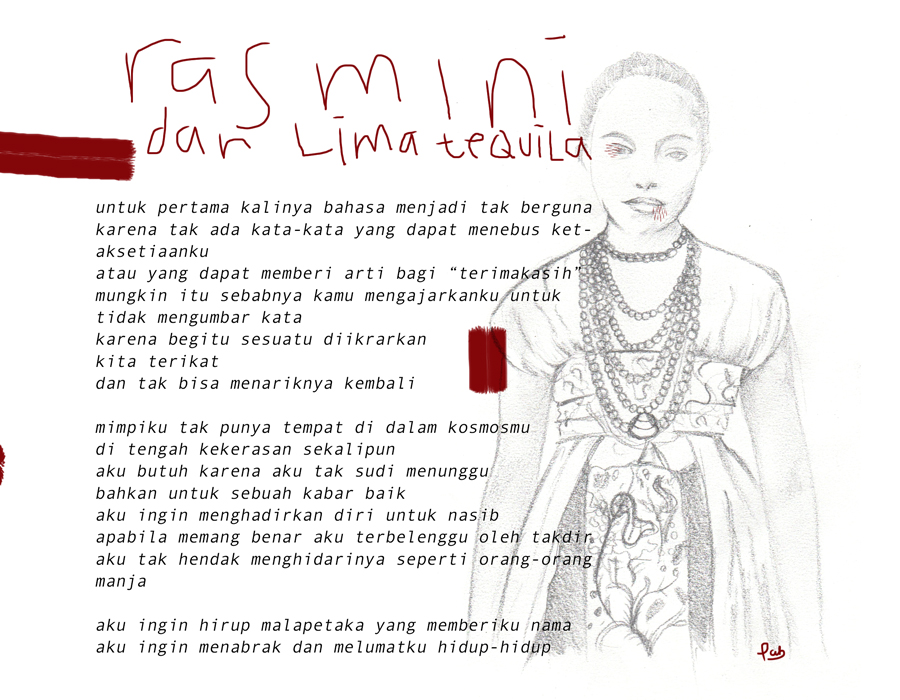 rasmini
dan Lima tequila
untuk pertama kalinya bahasa menjadi tak berguna
karena tak ada kata-kata yang dapat menebus ket-
aksetiaanku
atau yang dapat memberi arti bagi “terimakasih”
mungkin itu sebabnya kamu mengajarkanku untuk
tidak mengumbar kata
karena begitu sesuatu diikrarkan
kita terikat
dan tak bisa menariknya kembali
mimpiku tak punya tempat di dalam kosmosmu
di tengah kekerasan sekalipun
aku butuh karena aku tak sudi menunggu
bahkan untuk sebuah kabar baik
aku ingin menghadirkan diri untuk nasib
apabila memang benar aku terbelenggu oleh takdir
aku tak hendak menghidarinya seperti orang-orang
manja
aku ingin hirup malapetaka yang memberiku nama
aku ingin menabrak dan melumatku hidup-hidup